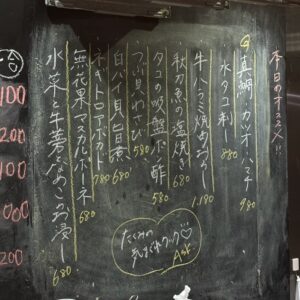 本日のオススメ!!
真鯛・カツオ・ハマチ 980
水タコ刺し 880
牛ハラミ焼肉おろし 1.180
秋刀魚の塩焼き 680
タコの吸盤ポン酢 580
つぶ貝わさび 580
白バイ貝旨煮 680
ネギトロアボカド 780
無花果マスカルポーネ 680
水菜と牛蒡となめこのお浸し 680
たくみの
気まぐれ
Ask
100
200
100
000
200